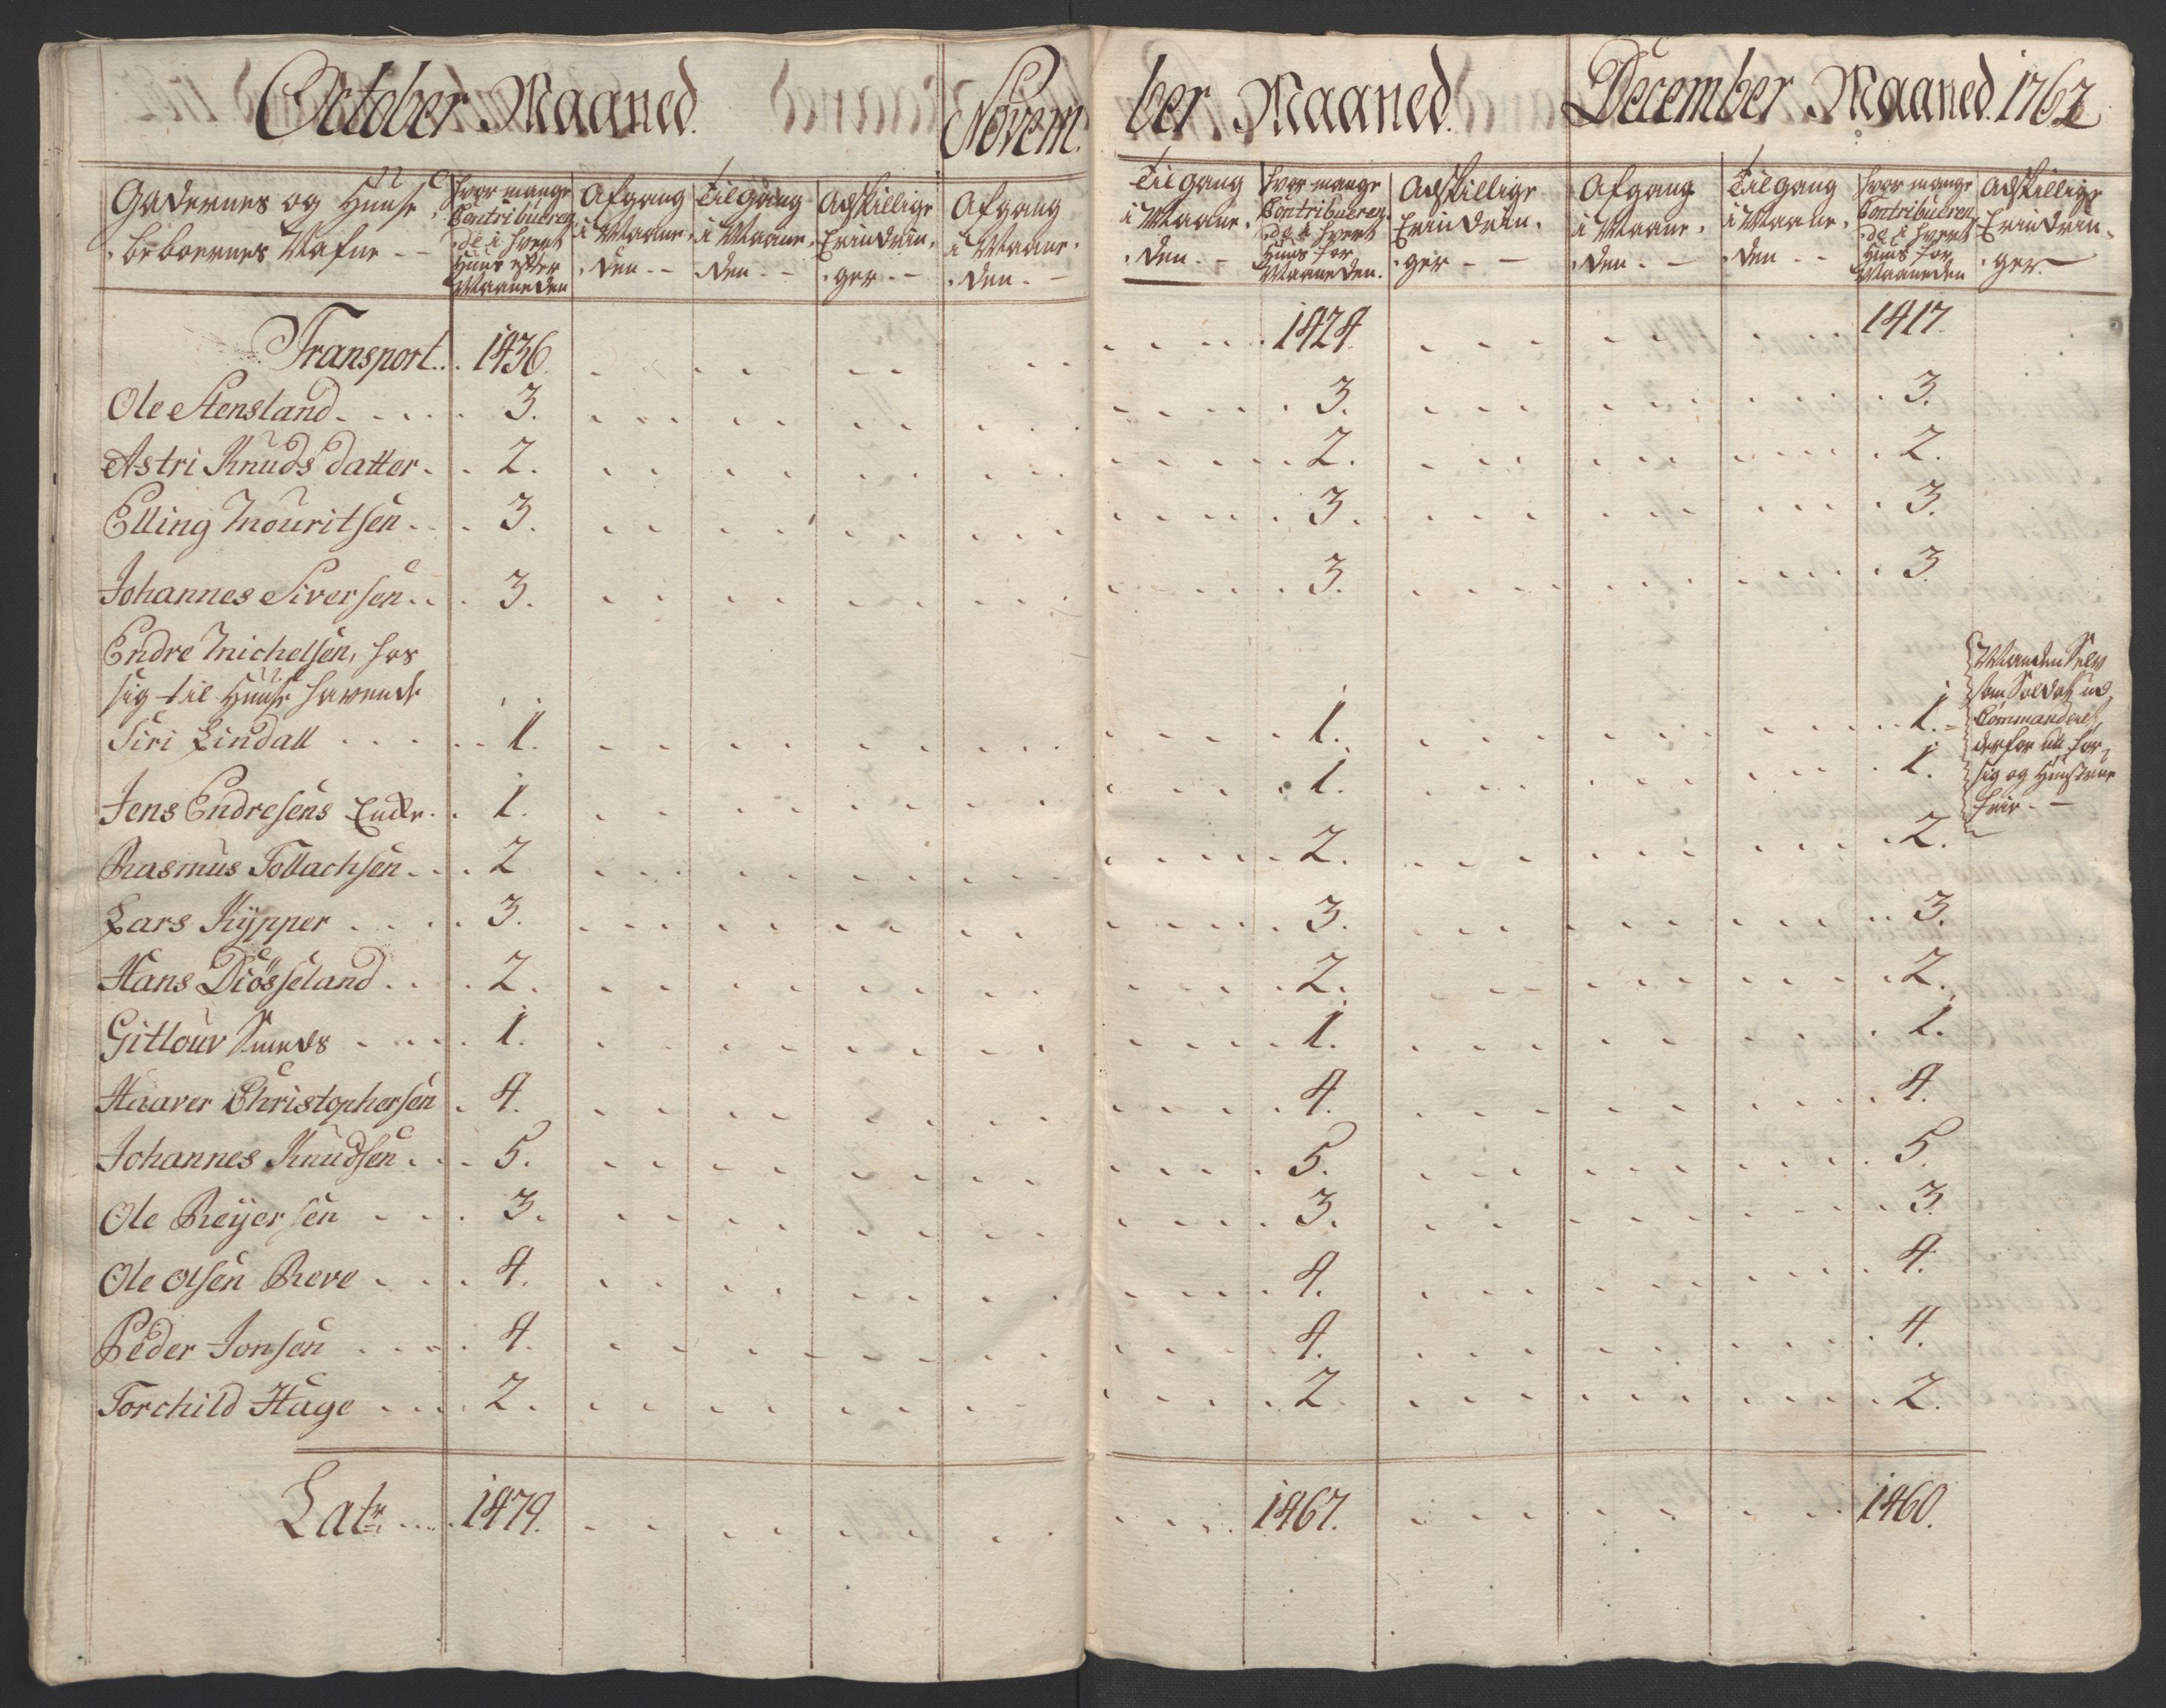 October Maaned. Novem ber Maaned. December Maaned. 1762
Gadernes og Huuse beboernes Nafne - -
hvor mange Contribueren de i hvert Huus efter Maaneden
Afgang i Maane den - -
Tilgang i Maane den - -
Adskillige Erindrin ger - -
Afgang i Maane den - -
Tilgang i Maane den - -
hvor mange Contribueren de i hvert Huus for Maaneden.
Adskillige Erindrin ger - -
Afgang i Maane den - -
Tilgang i Maane den - -
hvor mange Contribueren de i hvert Huus for Maaneden
Adskillige Erindrin ger. -
Transport... 1436. 1424. 1417.
Ole Stensland 3. 3. 3.
Astri Knuds datter 2. 2. 2.
Elling Mouritsen 3. 3. 3.
Johannes Siversen 3. 3. 3.
Endre Michelsen, hos
sig til Huuse havende
Siri Lindall 1. 1. 1.
Manden Selv
som Soldat ud
Commanderet,
derfor
sig og Hustrue
frie. -
Jens Endresens Enke 1. 1. 1.
Rasmus Tollachsen 2 2. 2.
Lars Kÿpper 3. 3. 3.
Hans Diösseland 2. 2. 2.
Gitlouv Smeds 1. 1. 1.
Haaver Christophersen 4. 4. 4.
Johannes Knudsen 5. 5. 5.
Ole Reÿersen 3. 3. 3.
Ole Olsen Reve 4. 4. 4.
Peder Jonsen 4. 4. 4.
Torchild Hage 2. 2. 2.
Latr .... 1479. 1467. 1460.